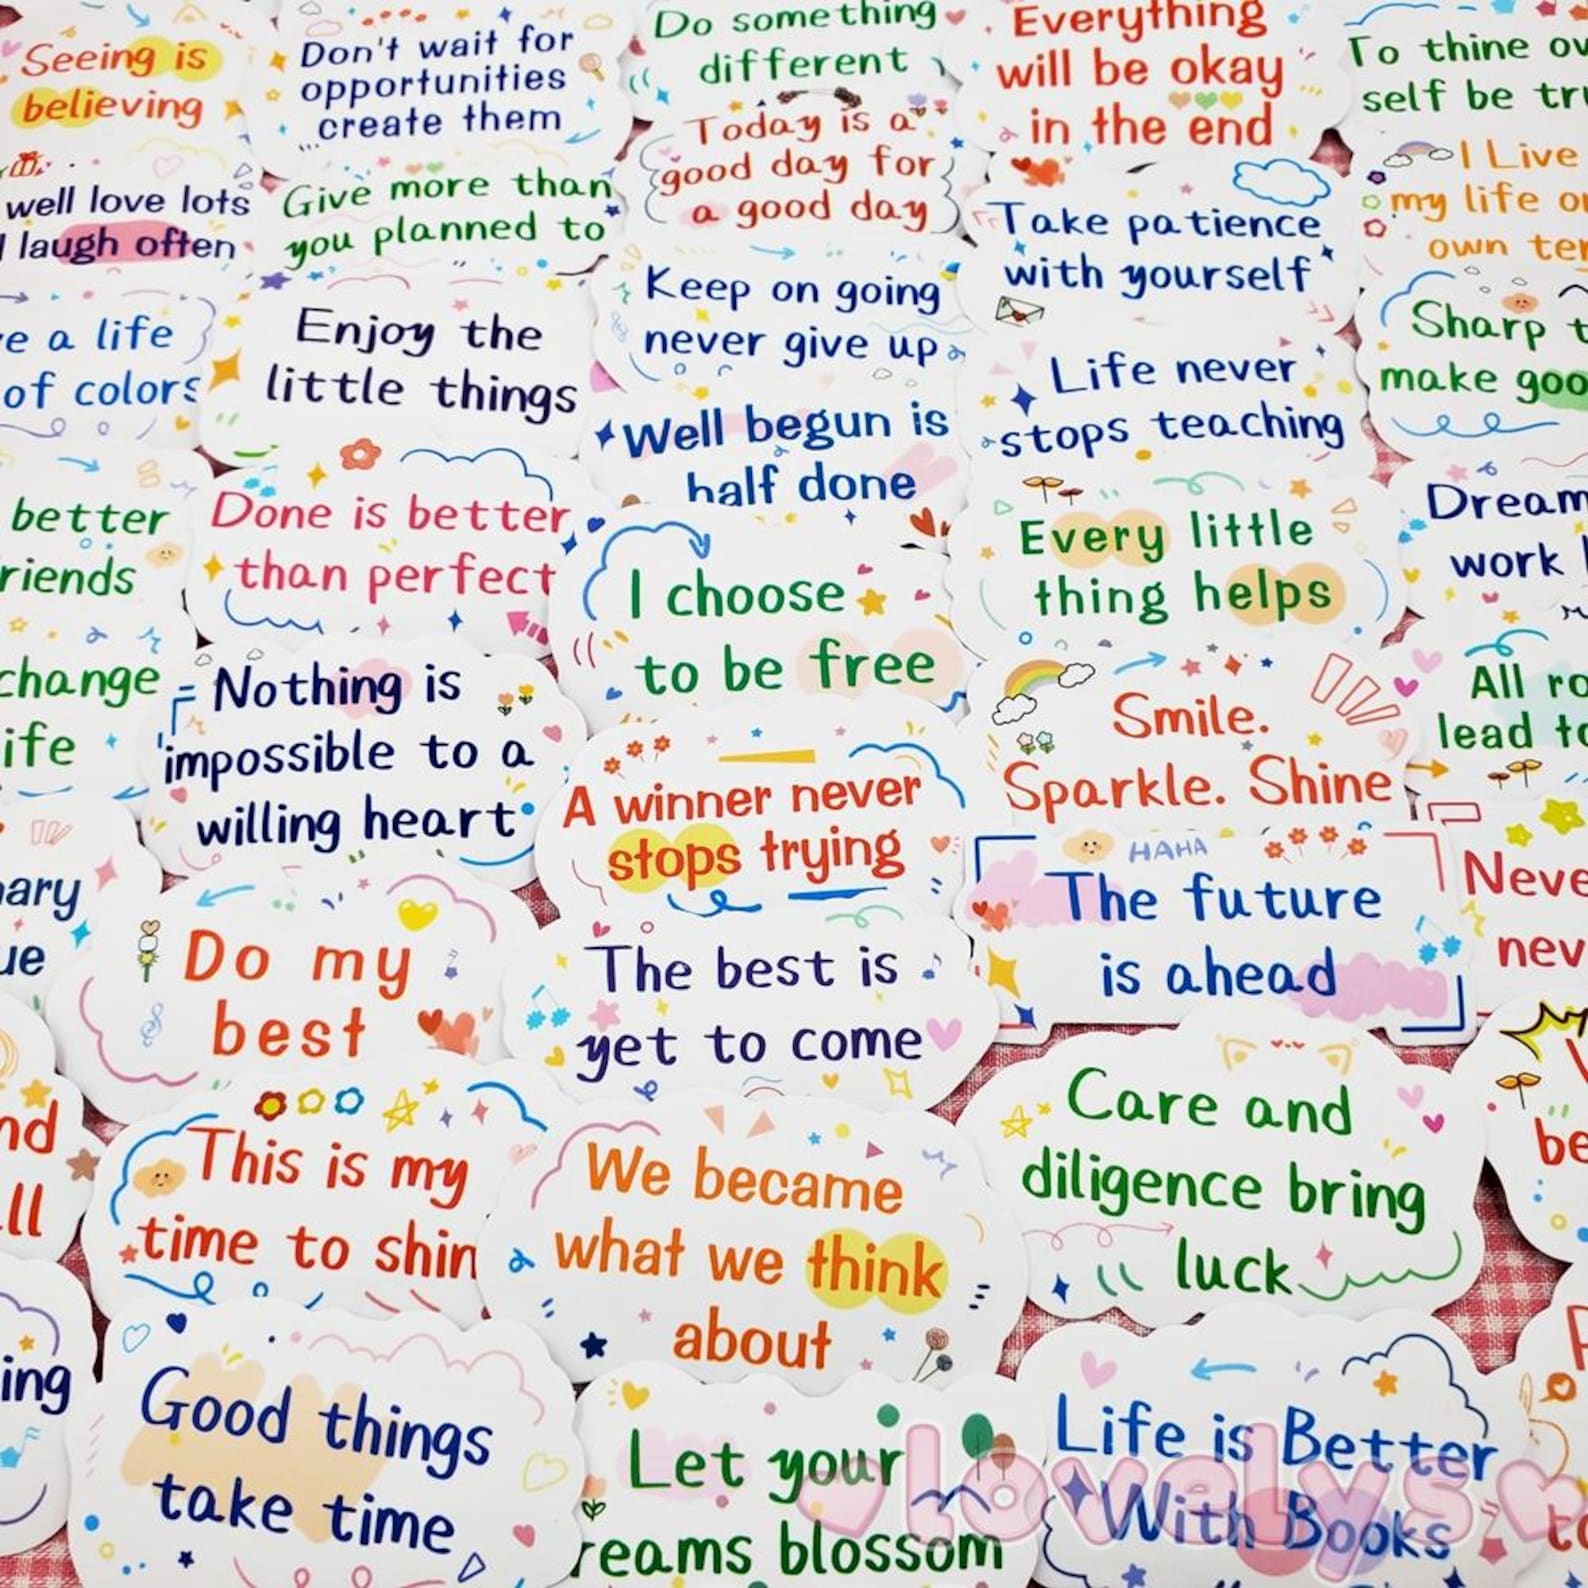 Seeing is
believing
Don't wait for
opportunities
create them
Do something
different
Everything
will be okay
in the end
To thine
self be
well love lots
laugh often
Give more than
you planned to
Today is a
good day for
a good day
Take patience
with yourself
I Live
my life
own
a life
of colors
Enjoy the
little things
Keep on going
never give up
Life never
stops teaching
Sharp
make
better
Done is better
than perfect
Well begun is
half done
Every little
thing helps
Dream
work
change
Nothing is
impossible to a
willing heart
I choose
to be free
Smile.
Sparkle. Shine
All
lead
A winner never
stops trying
HAHA
The future
is ahead
Do my
best
The best is
yet to come
Care and
diligence bring
luck
be
This is my
time to shin
We became
what we think
about
Good things
take time
Let your
reams blossom
Life is Better
With Books
lovelys